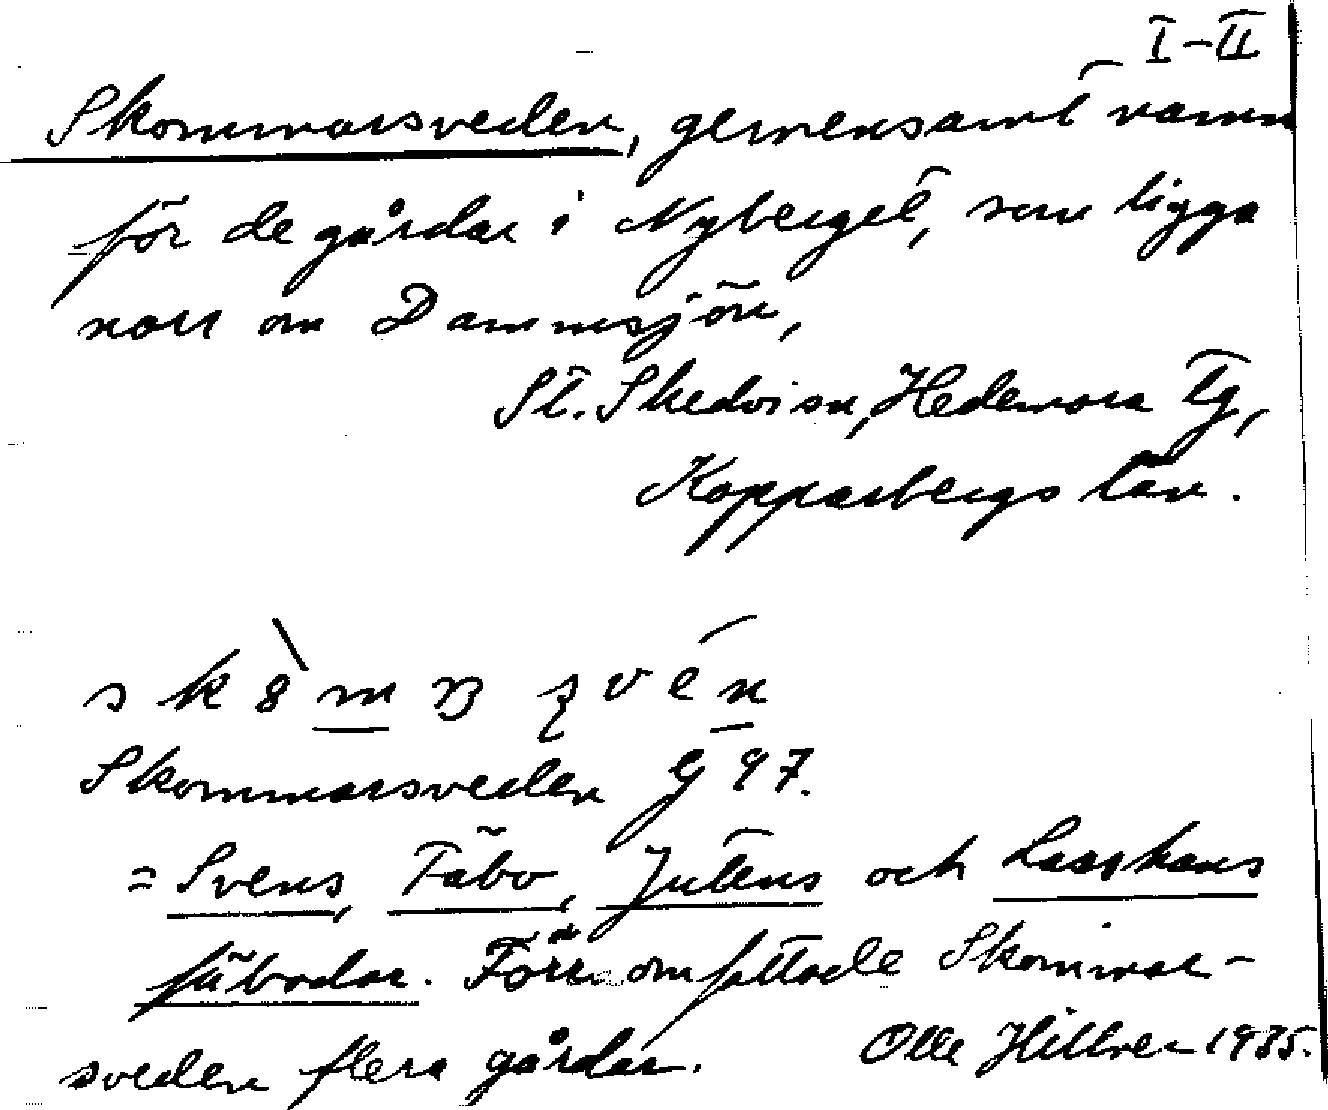 I-II
Skommarsveden, gemensamt namn
för de gårdar i Nyberget, som ligga
norr om Dammsjön,
St. Skedvi sn, Hedemora tg,
Kopparbergs län.
Skommarsveden G 97.
= Svens, Täbo, Jutens och Lasshans
fäbodar. Förr omfattade Skommar-
sveden flera gårdar. Olle Hillver 1935.